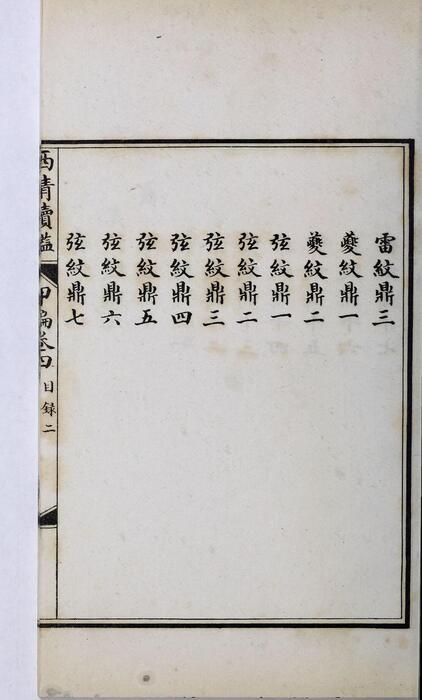 雷紋鼎三
夔紋鼎一
夔紋鼎二
弦紋鼎一
弦紋鼎二
弦紋鼎三
弦紋鼎四
弦紋鼎五
弦紋鼎六
弦紋鼎七
西清續鑑
甲編卷四
目錄二